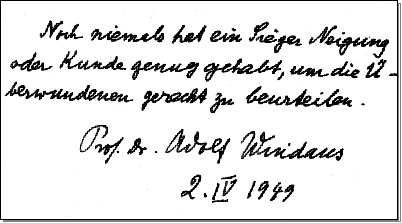 Noch niemals hat ein Sieger Neigung
oder Kunde genug gehabt, um die Ü-
berwundenen gerecht zu beurteilen.
Prof. Dr. Adolf Windaus
2. IV 1949